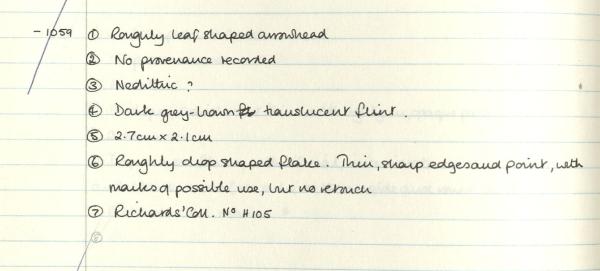 - 1059 ① Roughly leaf shaped arrowhead
② No provenance recorded
③ Neolithic ?
④ Dark grey-brown translucent flint.
⑤ 2.7cm x 2.1cm
⑥ Roughly drop shaped flake. Thin, sharp edges and point, with
marks of possible use, but no retouch
⑦ Richards' Coll. No H105
⑧